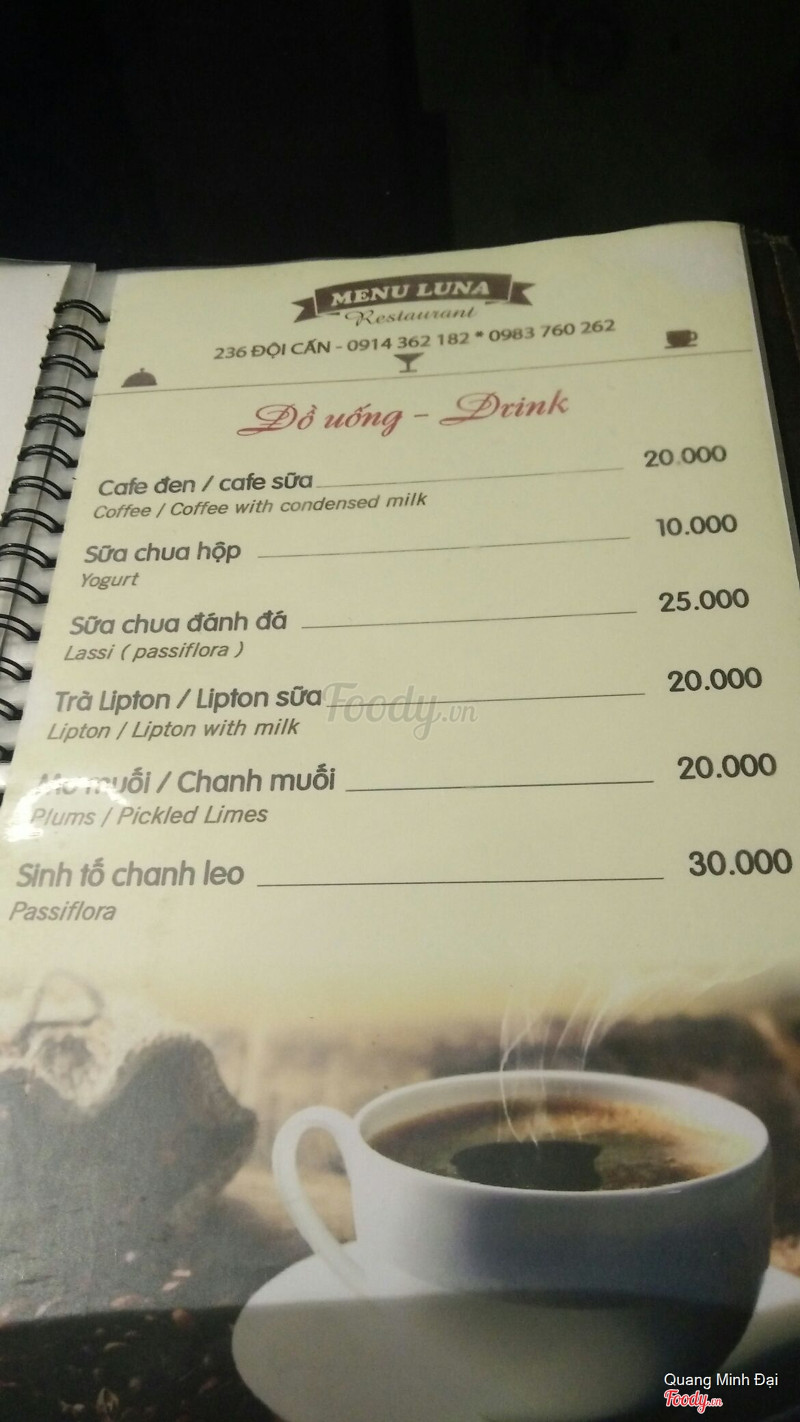 MENU LUNA
Restaurant
236 ĐỘI CẤN - 0914 362 182 * 0983 760 262
Đồ uống - Drink
Cafe đen / cafe sữa 20.000
Coffee / Coffee with condensed milk
Sữa chua hộp 10.000
Yogurt
Sữa chua đánh đá 25.000
Lassi ( passiflora )
Trà Lipton / Lipton sữa 20.000
Lipton / Lipton with milk
Foody.vn
Mơ muối / Chanh muối 20.000
Plums / Pickled Limes
Sinh tố chanh leo 30.000
Passiflora
Quang Minh Đại
Foody.vn